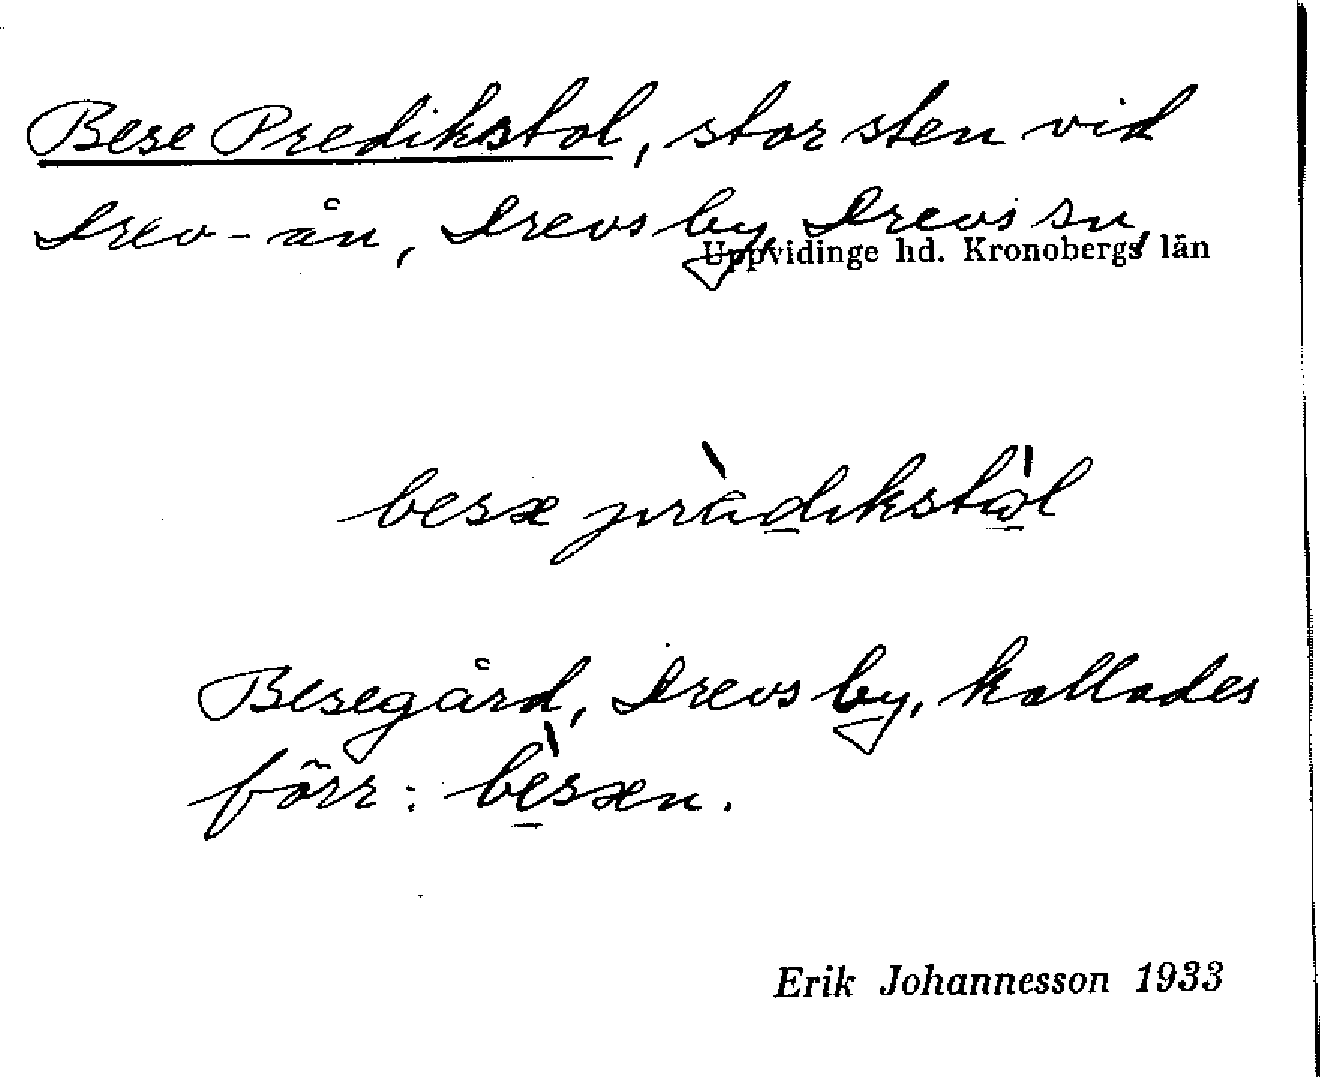 Bese Predikstol, stor sten vid
Drev-ån, Drevs by Drevs sn,
Uppvidinge hd. Kronobergs län
besæ pràdikstàl
Besegård, Drevs by, kallades
förr: bèsæn.
Erik Johannesson 1933